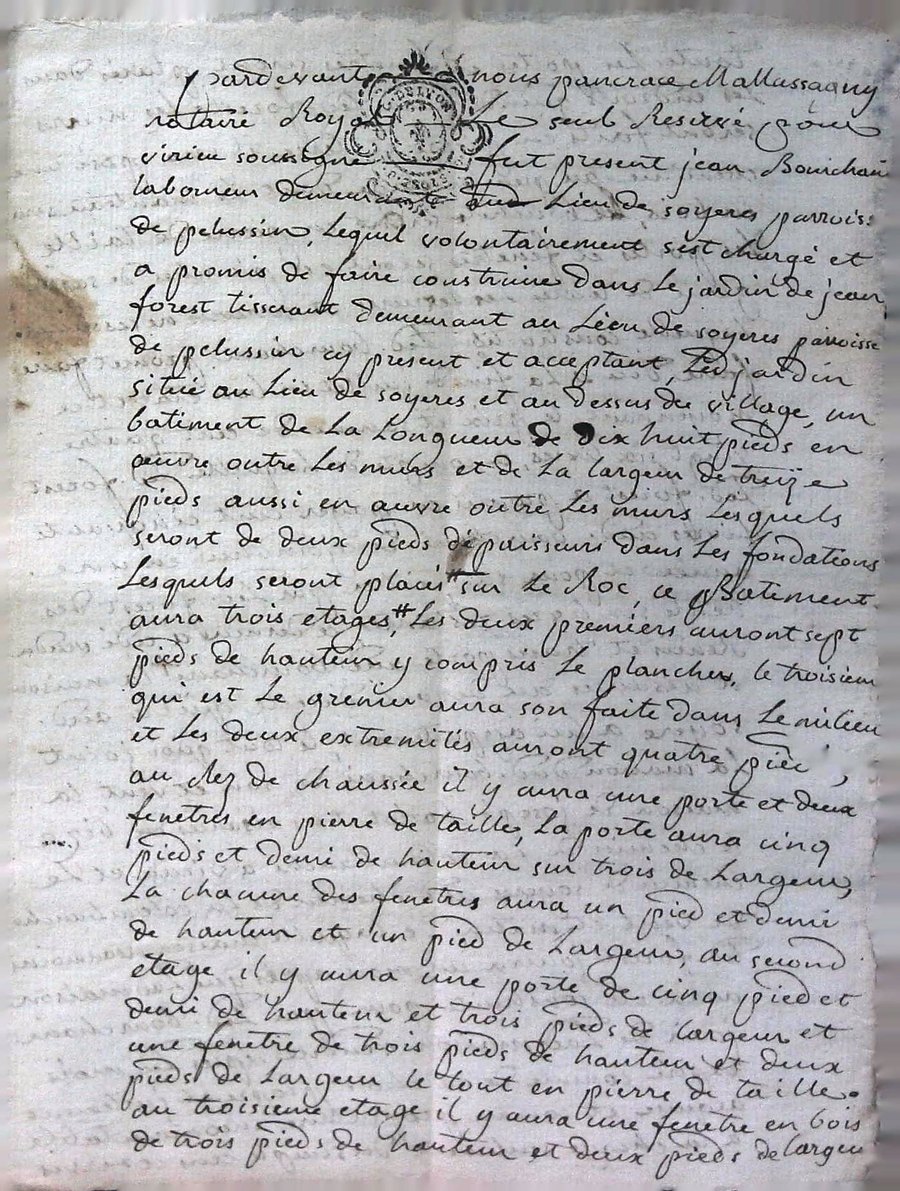 pardevant nous pancrace Mallassagny
notaire Royal Le seul Reservé pour
virieu soussigné fut present jean Bourchan
laboureur demeurant au Lieu de soyeres parrois:
de pelussin, Lequel volontairement s'est chargé et
a promis de faire construire dans Le jardin de jean
forest tisserant demeurant au Lieu de soyeres parroisse
de pelussin cy present et acceptant, Led jardin
situé au Lieu de soyeres et au dessus du village, un
batiment de La Longueur de dix huit pieds en
œuvre outre Les murs et de La largeur de treize
pieds aussi en œuvre outre Les murs Lesquels
seront de deux pieds dépaisseurs dans Les fondations
Lesquels seront placés # sur Le Roc, ce Batiment
aura trois etages, # Les deux premiers auront sept
pieds de hauteur y compris Le plancher, le troisieme
qui est Le grenier aura son faite dans Le milieu
et Les deux extremités auront quatre pied,
au Rez de chaussée il y aura une porte et deux
fenetres en pierre de taille, La porte aura cinq
pieds et demi de hauteur sur trois de Largeur,
La chacune des fenetres aura un pied et demi
de hauteur et un pied de Largeur, au second
etage il y aura une porte de cinq pied et
demi de hauteur et trois pieds de largeur et
une fenetre de trois pieds de hauteur et deux
pieds de Largeur le tout en pierre de taille.
au troisieme etage il y aura une fenetre en bois
de trois pieds de hauteur et deux pieds de largeur